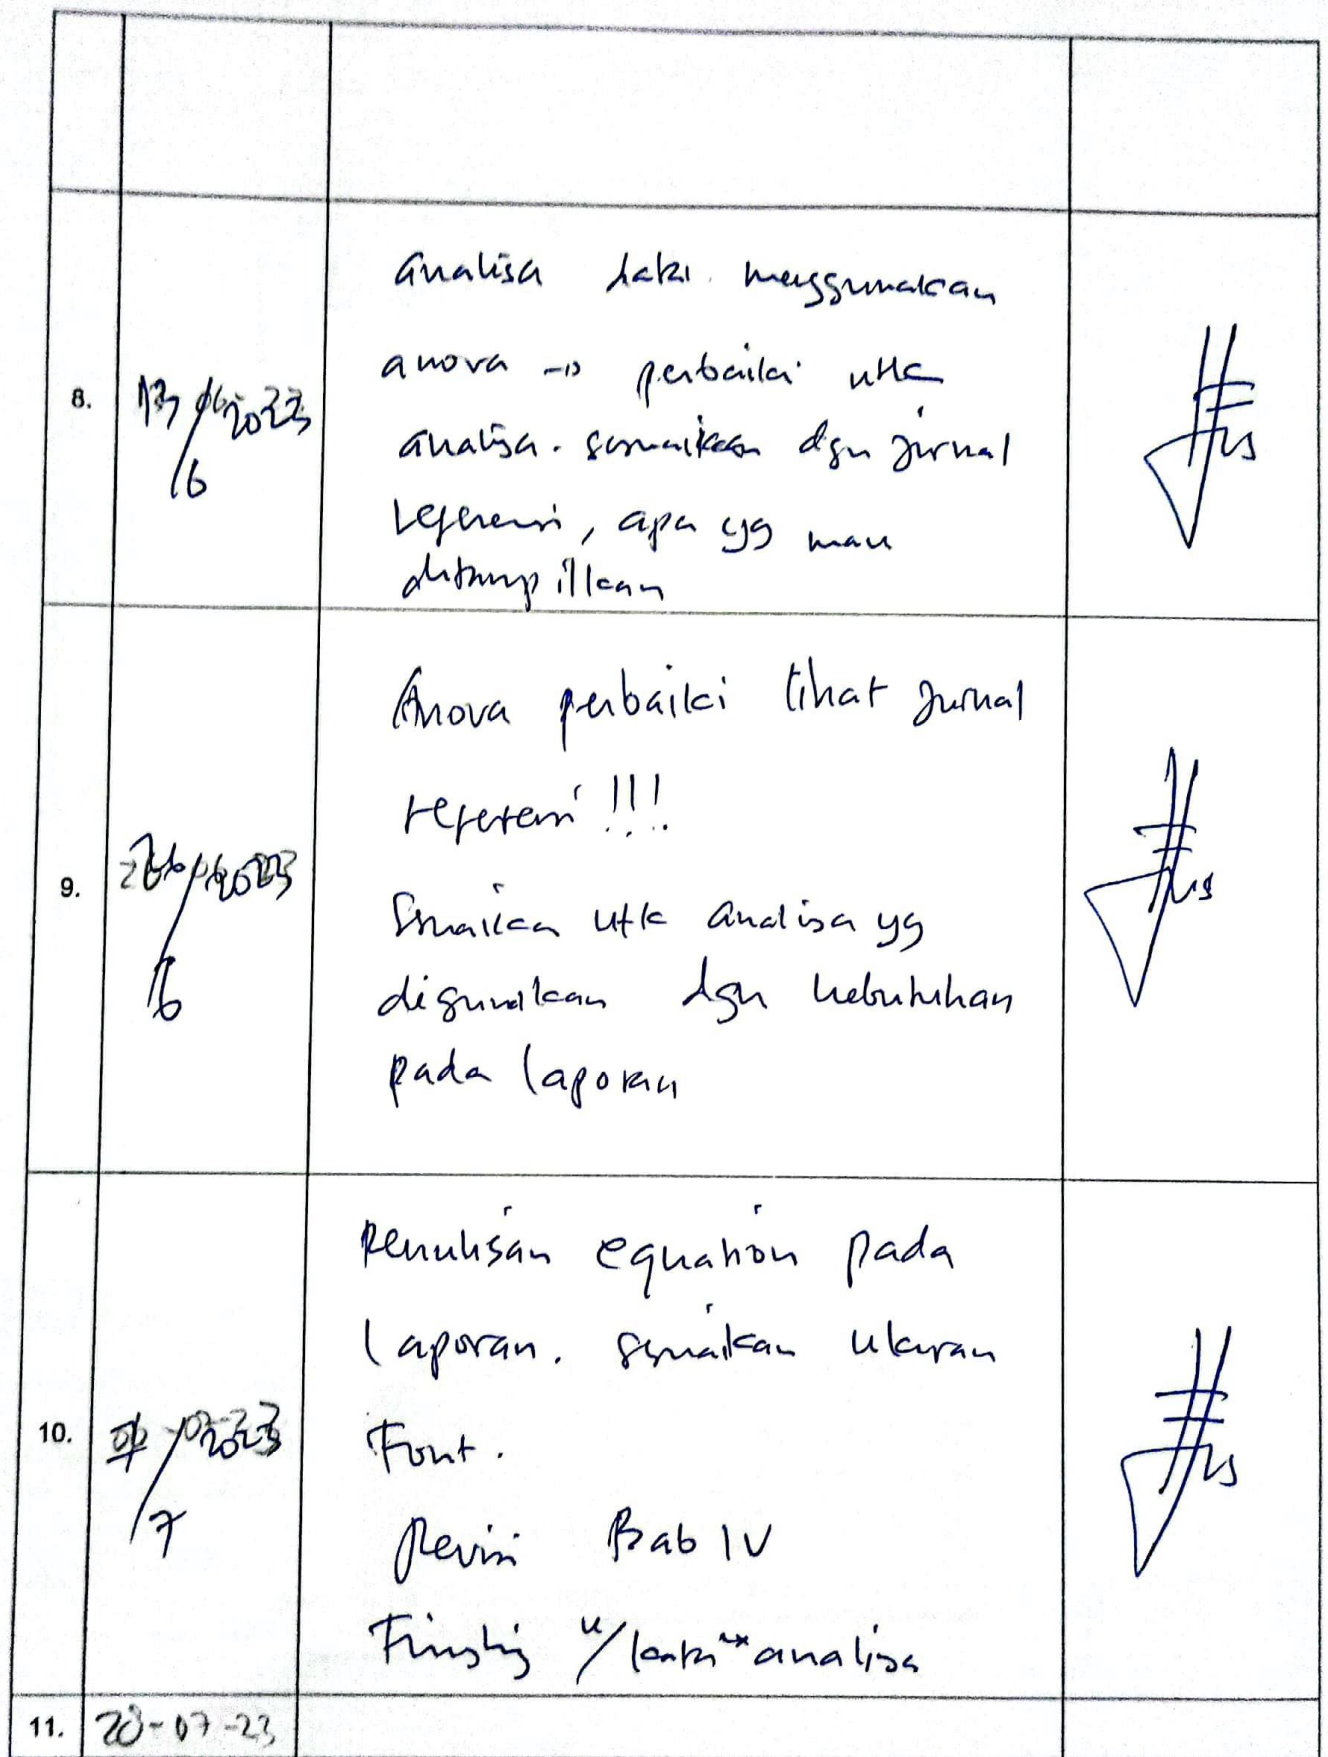 8.
13/6 2023
Analisa data menggunakan
anova → perbaiki utk
analisa. sesuaikan dgn jurnal
referensi, apa yg mau
ditampilkan
9.
26/6 2023
Anova perbaiki lihat jurnal
referensi !!!
Sesuaikan utk analisa yg
digunakan dgn kebutuhan
pada laporan
10.
/7 2023
Penulisan equation pada
laporan. sesuaikan ukuran
Font.
Revisi Bab IV
Finishing u/ analisa
11. 28-07-23